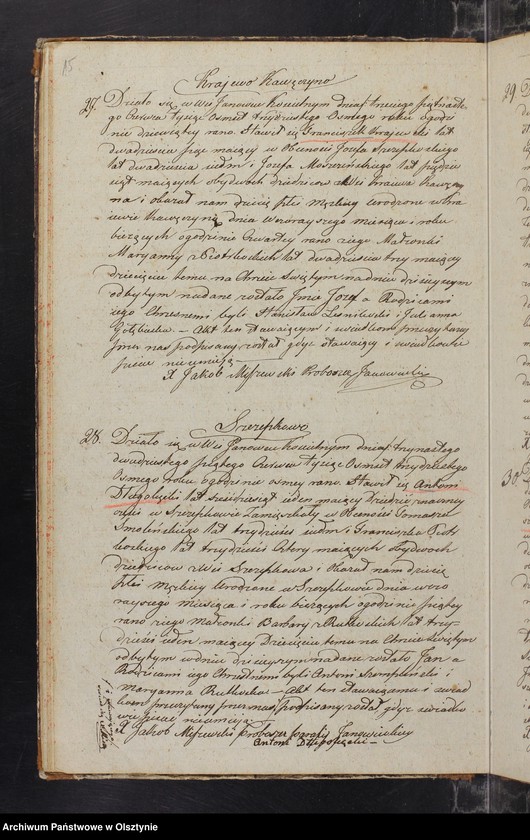 15
Krajewo Kawęczyno
27. Działo się w Wsi Janowcu Kościelnym dnia
go Czerwca Tysiąc Osmset trzydziestego Osmego roku ogodzi
nie dziewiątey rano. Stawił się Franciszek Krajewski lat
dwadzieścia pięć maiący w Obecności Józefa Szczepkowskiego
lat dwadzieścia siedm i Józefa lat pięćdzie
siąt maiących obydwoch dziedzicow z Wsi Krajewa Kawęczy
na i okazał nam dziecię płci męzkiey Urodzone w Kra
iewie Kawęczynie dnia wczorayszego miesiąca i roku
bieżących ogodzinie Czwartey rano z iego Małżonki
Maryanny z Piotrkoskich lat dwadzieścia trzy maiącey
dziecięciu temu na Chrzcie Swiętym na dniu dzisieyszym
odbytym nadane zostało Imie Józef a Rodzicami
iego Chrzesnemi byli Stanisław Leśniewski i Julianna
Akt ten stawaiącym i świadkom przeczytany
przez nas podpisany został gdyż stawaiący i świadkowie
pisać nie umieią
X Jakób Miszewski Proboszcz Janowiecki
Szczepkowo
28. Działo się w Wsi Janowcu Kościelnym dnia trzynastego
dwudziestego piątego Czerwca tysiąc Osmset trzydziestego
Osmego roku ogodzinie osmey rano Stawił się Antoni
Długołęcki lat sześćdziesiąt ieden maiący Dziedzic
części w Szczepkowie zamieszkały w Obecności Tomasza
Smoleńskiego lat trzydzieści siedm i Franciszka Piotr
kowskiego lat trzydzieści Cztery maiących obydwoch
dziedzicow z Wsi Szczepkowa i okazał nam dziecię
płci Męzkiey Urodzone w Szczepkowie dnia wczo
rayszego miesiąca i roku bieżących ogodzinie piątey
rano z iego Małżonki Barbary z Rutkoskich lat trzy
dzieści ieden maiącey Dziecięciu temu na Chrzcie Swiętym
odbytym w dniu dzisieyszym nadane zostało Jan a
Rodzicami iego Chrzesnemi byli Antoni i
Maryanna Rutkoska Akt ten stawaiącemu i świad
kom przeczytany przez nas podpisany został gdyż świadko
wie pisać nieumieią
X Jakób Miszewski Proboszcz Janowiecki
Antoni Długołęcki
29
30.
Archiwum Państwowe w Olsztynie